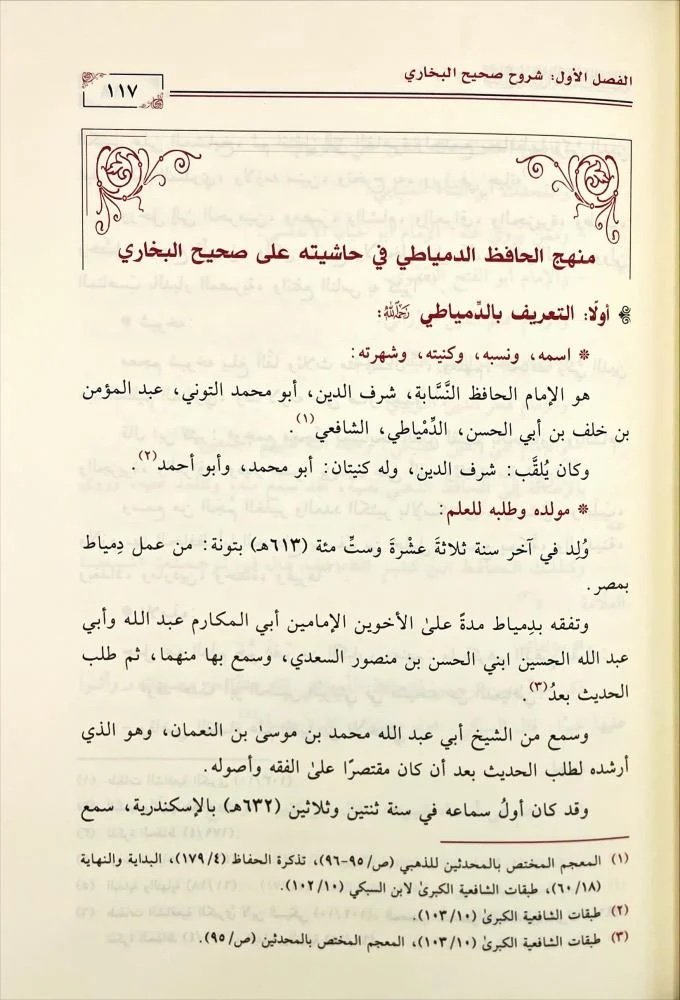 الفصل الأول: شروح صحيح البخاري
١١٧
منهج الحافظ الدمياطي في حاشيته على صحيح البخاري
أولًا: التعريف بالدِّمياطي رَحِمَهُ اللَّهُ:
* اسمه، ونسبه، وكنيته، وشهرته:
هو الإمام الحافظ النَّسَّابة، شرف الدين، أبو محمد التوني، عبد المؤمن
بن خلف بن أبي الحسن، الدِّمْياطي، الشافعي(١).
وكان يُلقَّب: شرف الدين، وله كنيتان: أبو محمد، وأبو أحمد(٢).
* مولده وطلبه للعلم:
وُلِد في آخر سنة ثلاثةَ عشْرةَ وستِّ مئة (٦١٣هـ) بتونة: من عمل دِمياط
بمصر.
وتفقه بدِمياط مدةً علىٰ الأخوين الإمامين أبي المكارم عبد الله وأبي
عبد الله الحسين ابني الحسن بن منصور السعدي، وسمع بها منهما، ثم طلب
الحديث بعدُ(٣).
وسمع من الشيخ أبي عبد الله محمد بن موسىٰ بن النعمان، وهو الذي
أرشده لطلب الحديث بعد أن كان مقتصرًا علىٰ الفقه وأصوله.
وقد كان أولُ سماعه في سنة ثنتين وثلاثين (٦٣٢هـ) بالإسكندرية، سمع
(١) المعجم المختص بالمحدثين للذهبي (ص/٩٥-٩٦)، تذكرة الحفاظ (١٧٩/٤)، البداية والنهاية
(٦٠/١٨)، طبقات الشافعية الكبرىٰ لابن السبكي (١٠٢/١٠).
(٢) طبقات الشافعية الكبرىٰ (١٠٣/١٠).
(٣) طبقات الشافعية الكبرىٰ (١٠٣/١٠)، المعجم المختص بالمحدثين (ص/٩٥).